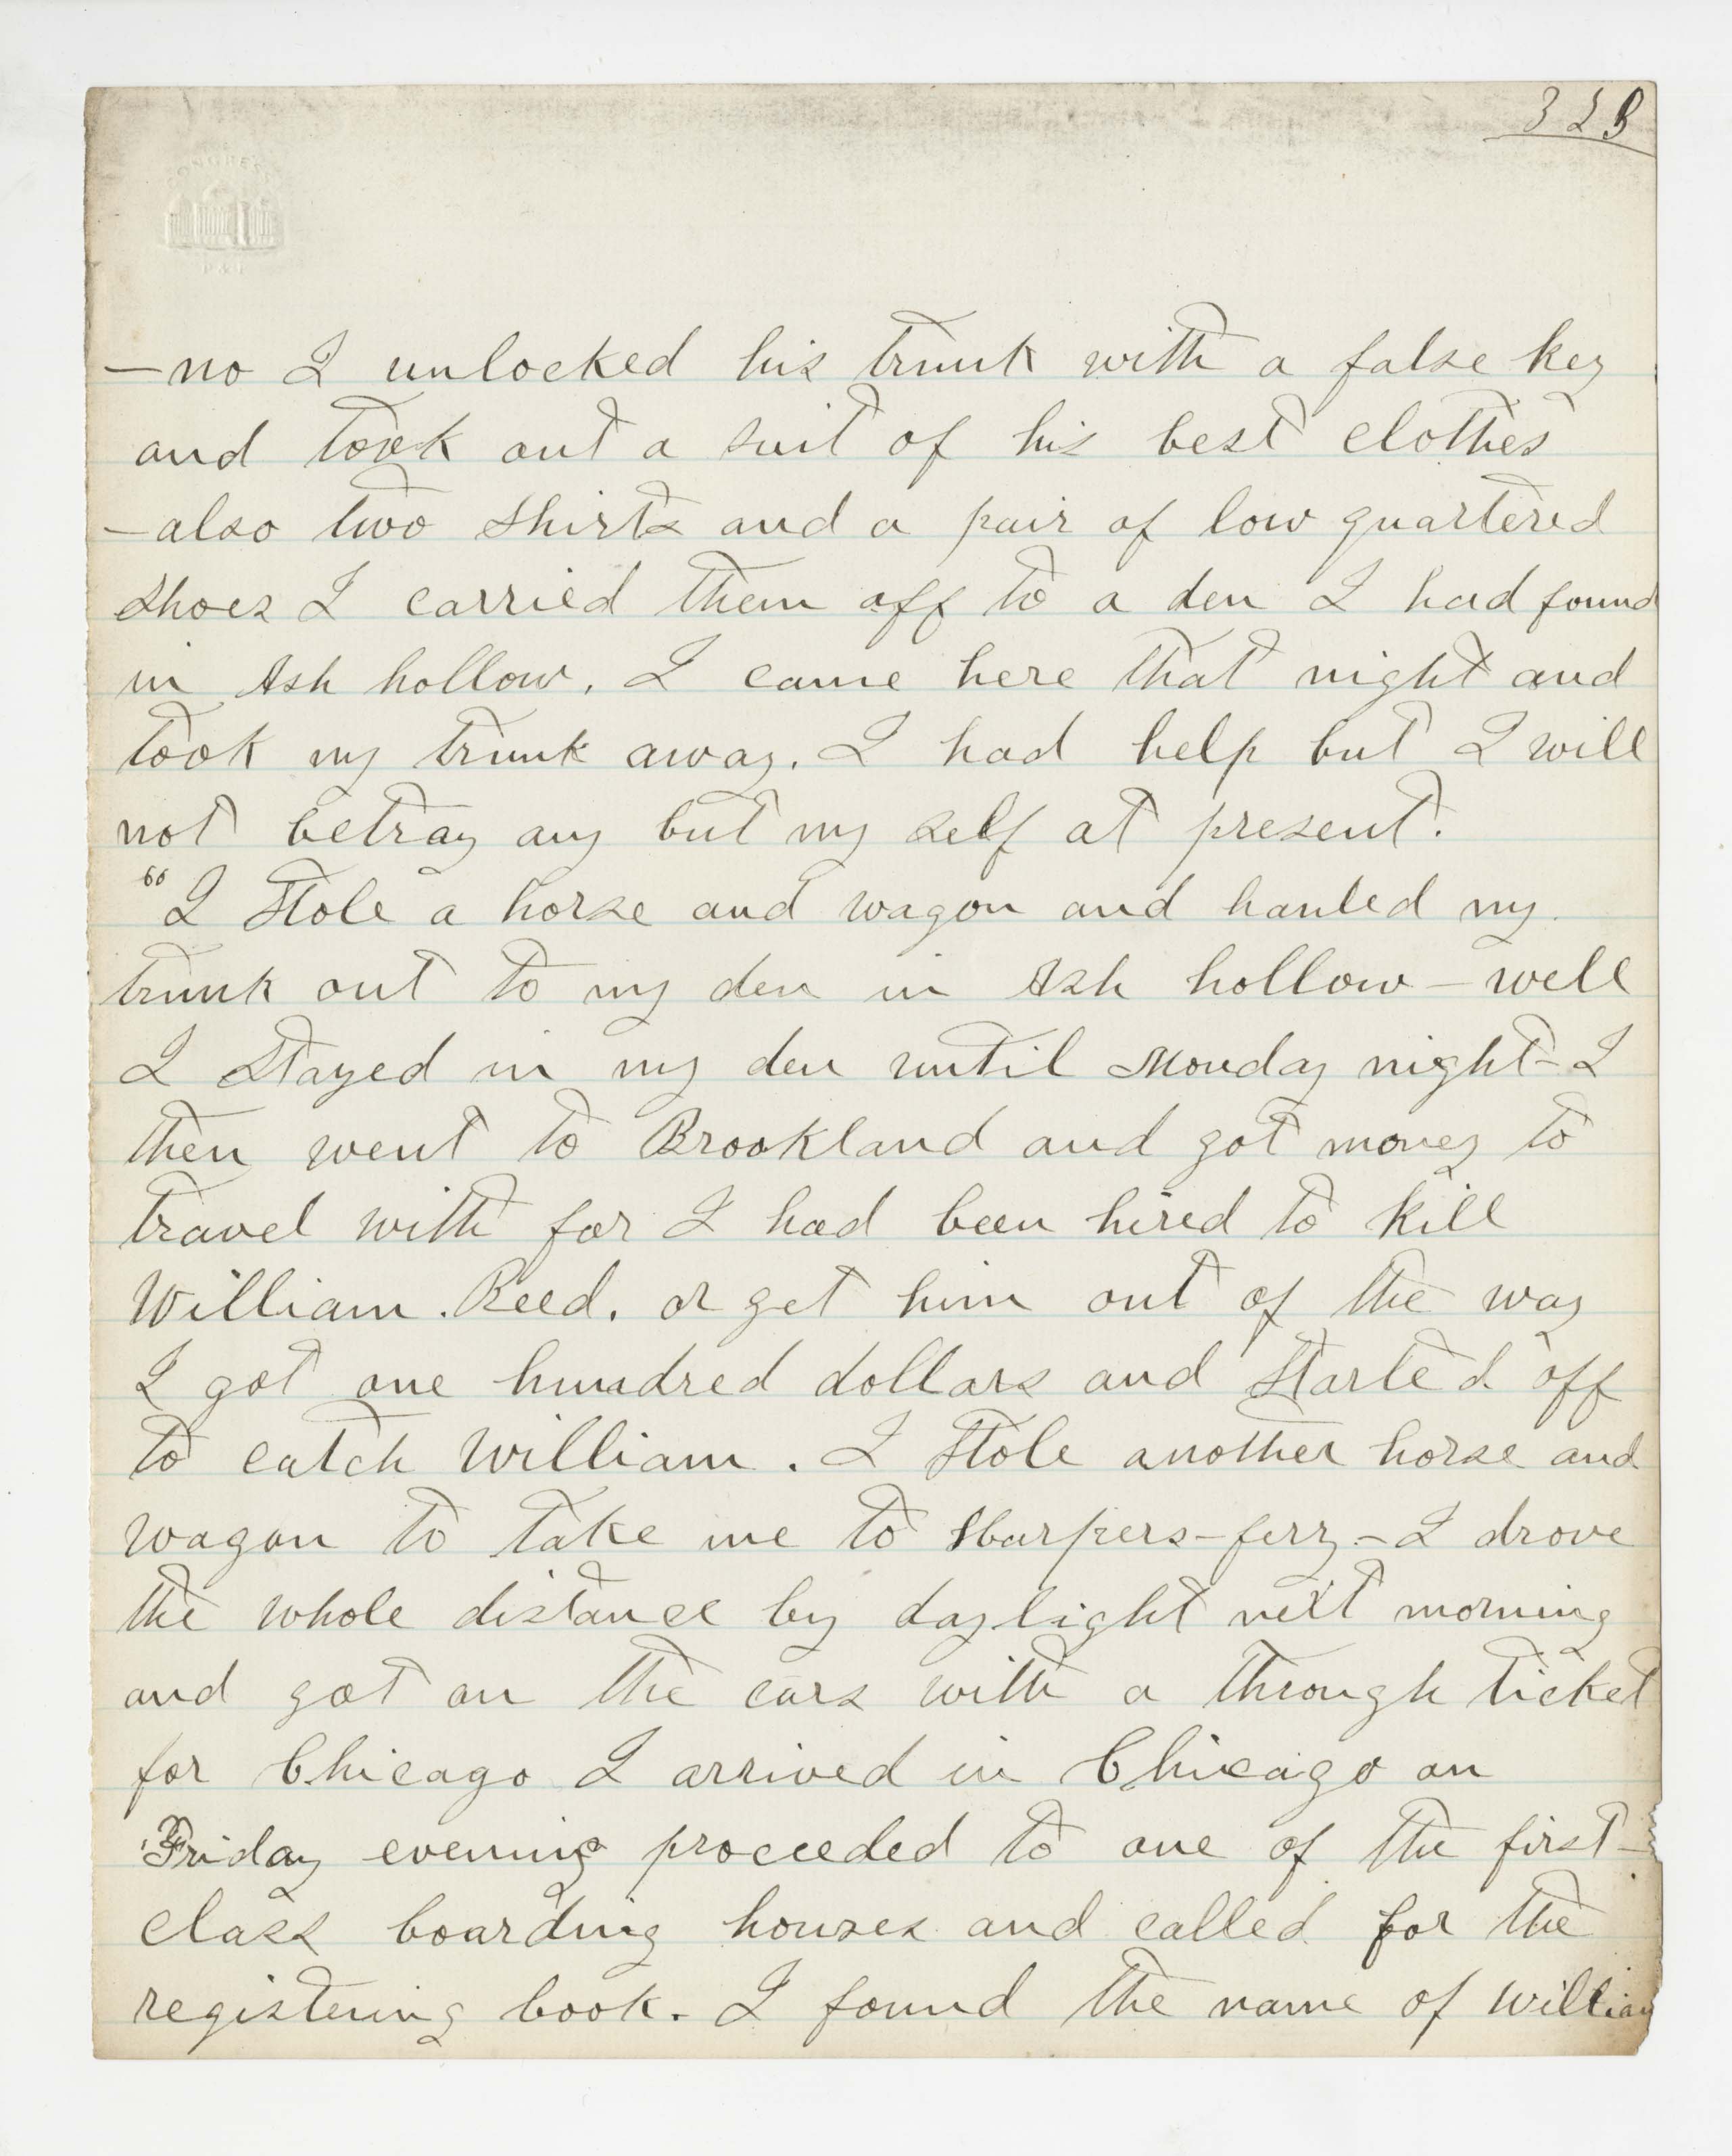 323
CONGRESS
P & P
—no I unlocked his trunk with a false key
and took out a suit of his best clothes
—also two shirts and a pair of low quartered
shoes I carried them off to a den I had found
in Ash hollow. I came here that night and
took my trunk away. I had help but I will
not betray any but my self at present.
"I stole a horse and wagon and hauled my
trunk out to my den in Ash hollow — well
I stayed in my den until Monday night - I
then went to Brookland and got money to
travel with for I had been hired to kill
William. Reed. or get him out of the way
I got one hundred dollars and started off
to catch William. I stole another horse and
wagon to take me to Harpers-ferry - I drove
the whole distance by daylight next morning
and got on the cars with a through ticket
for Chicago I arrived in Chicago on
Friday evening proceeded to one of the first-
class boarding houses and called for the
registering book. I found the name of William